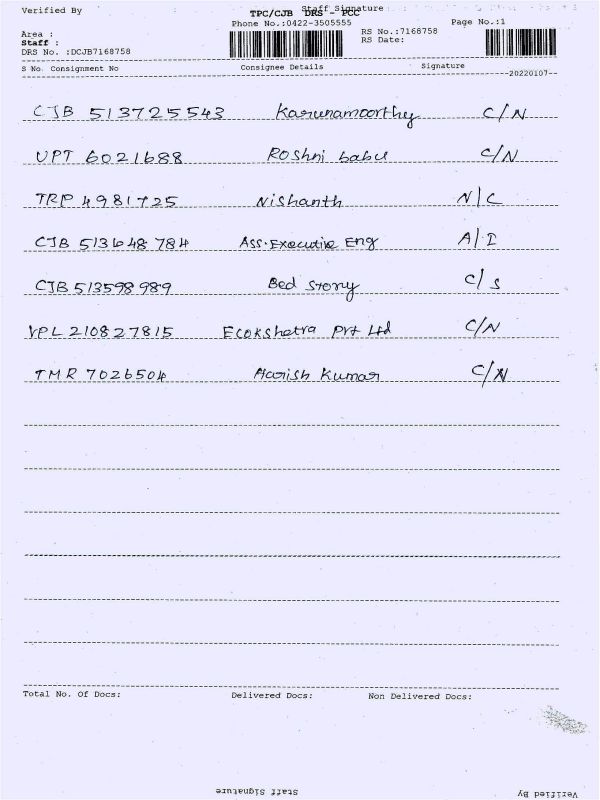 Verified By Staff Signature
TPC/CJB DRS - PCC
Phone No.:0422-3505555 Page No.:1
Area : RS No.:7168758
Staff : RS Date:
DRS No. :DCJB7168758
S No. Consignment No Consignee Details Signature
20220107
CJB 513725543 Karunamoorthy C/N
UPT 6021688 Roshni babu C/N
TRP 4981725 Nishanth N/C
CJB 513648784 Ass.Executive Eng A/I
CJB 513598989 Bed Story C/S
VPL 210827815 Ecokshetra Pvt Ltd C/N
TMR 7026504 Harish Kumar C/N
Total No. Of Docs: Delivered Docs: Non Delivered Docs:
Staff Signature Verified By